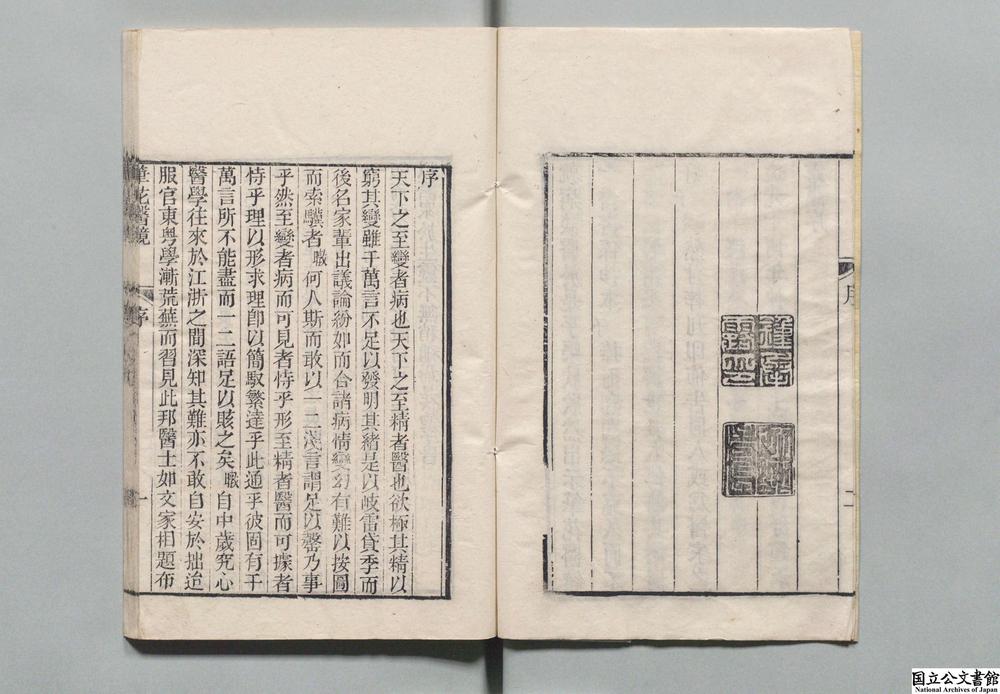 序
二
序
天下之至變者病也天下之至精者醫也欲極其精以
窮其變雖千萬言不足以發明其緒是以岐雷貸季而
後名家輩出議論紛如而合諸病情變幻有難以按圖
而索驥者職何人斯而敢以一二淺言謂足以罄乃事
乎然至變者病而可見者恃乎形至精者醫而可據者
恃乎理以形求理卽以簡馭繁達乎此通乎彼固有千
萬言所不能盡而一二語足以賅之矣職自中歲究心
醫學往來於江浙之間深知其難亦不敢自安於拙迨
服官東粤學漸荒蕪而習見此邦醫士如文家相題布
筆花醫鏡
序
一
国立公文書館
National Archives of Japan